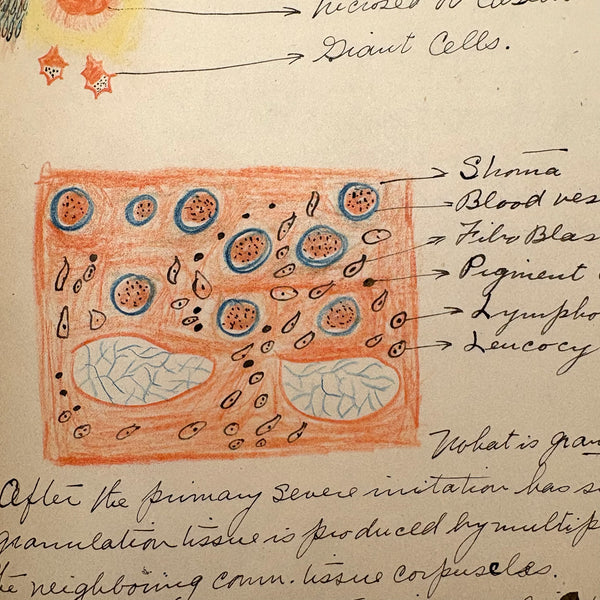 Giant Cells.
Stroma
Blood ves
Fibro Blas
Pigment
Lympho
Leucocy
What is gran
After the primary severe irritation has s
granulation tissue is produced by multip
he neighboring conn. tissue corpuscles.